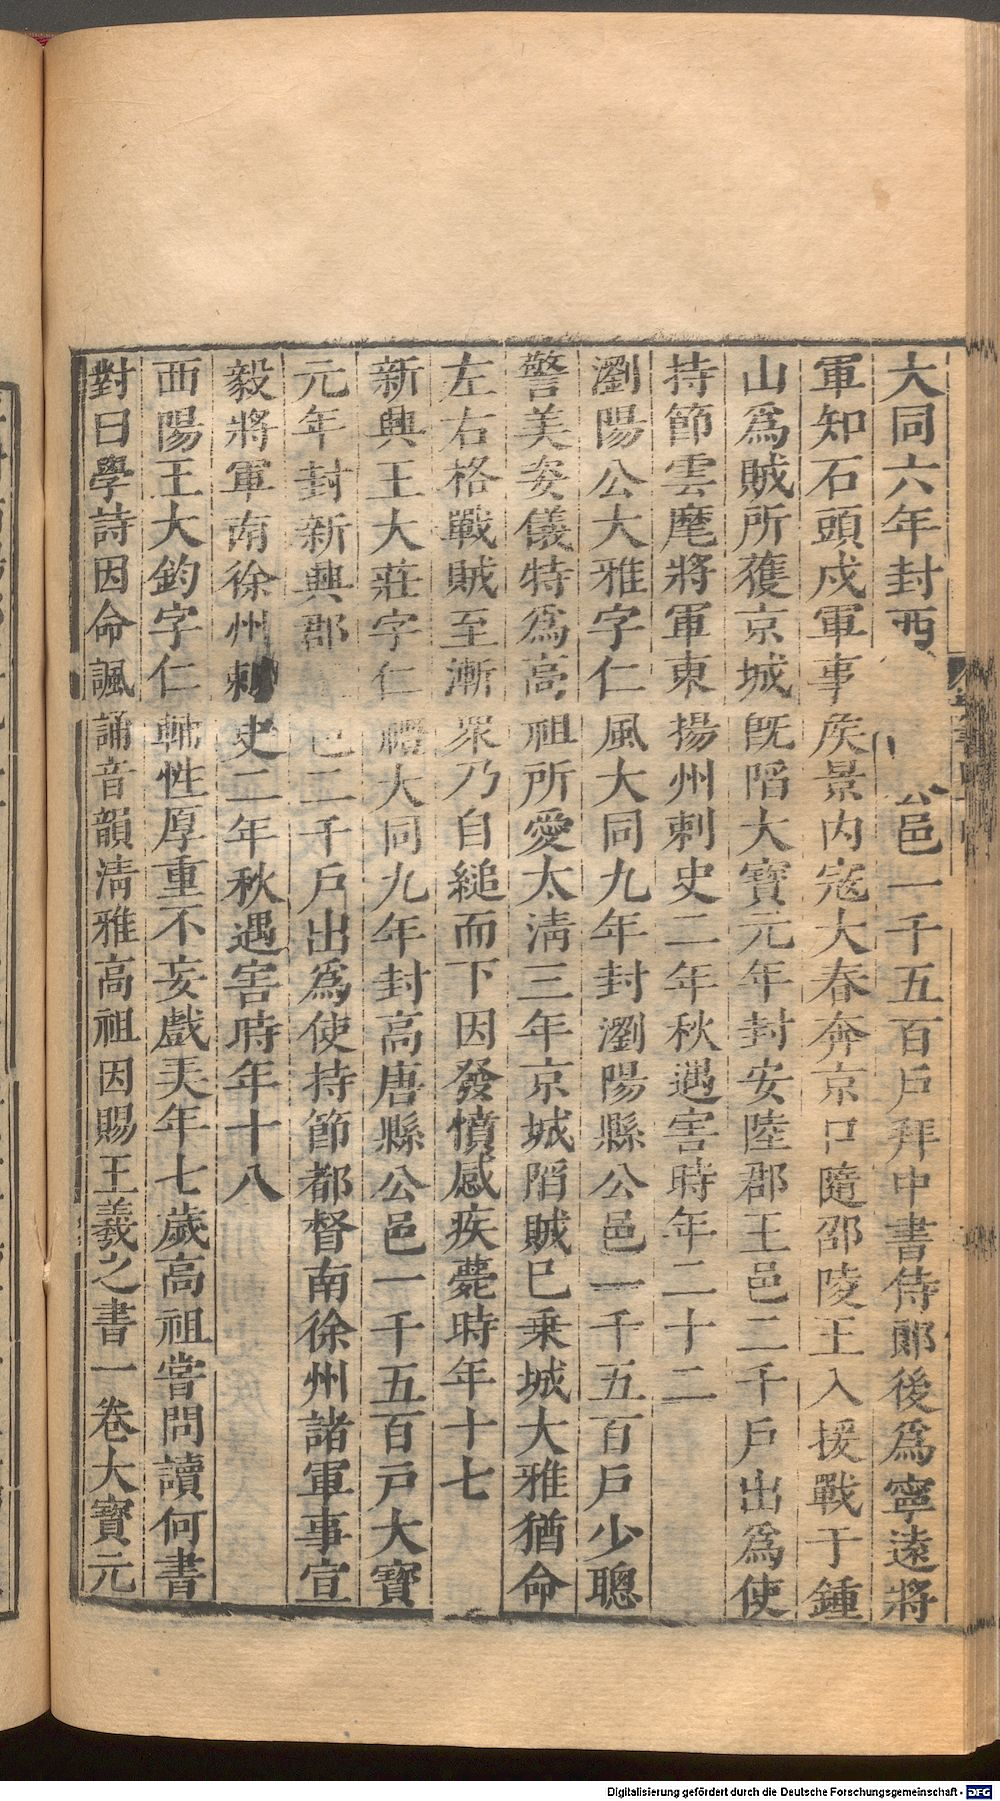 大同六年封西 公邑一千五百戶拜中書侍郎後爲寧遠將
軍知石頭戍軍事侯景内寇大春奔京口隨邵陵王入援戰于鍾
山爲賊所獲京城旣陷大寶元年封安陸郡王邑二千戶出爲使
持節雲麾將軍東揚州刺史二年秋遇害時年二十二
瀏陽公大雅字仁風大同九年封瀏陽縣公邑一千五百戶少聰
警美姿儀特爲高祖所愛太清三年京城陷賊已乗城大雅猶命
左右格戰賊至漸衆乃自縋而下因發憤感疾薨時年十七
新興王大莊字仁禮大同九年封高唐縣公邑一千五百戸大寶
元年封新興郡 邑二千戶出爲使持節都督南徐州諸軍事宣
毅將軍南徐州刺史二年秋遇害時年十八
西陽王大鈞字仁輔性厚重不妄戲天年七歲高祖嘗問讀何書
對曰學詩因命諷誦音韻清雅高祖因賜王羲之書一卷大寶元
Digitalisierung gefördert durch die Deutsche Forschungsgemeinschaft - DFG